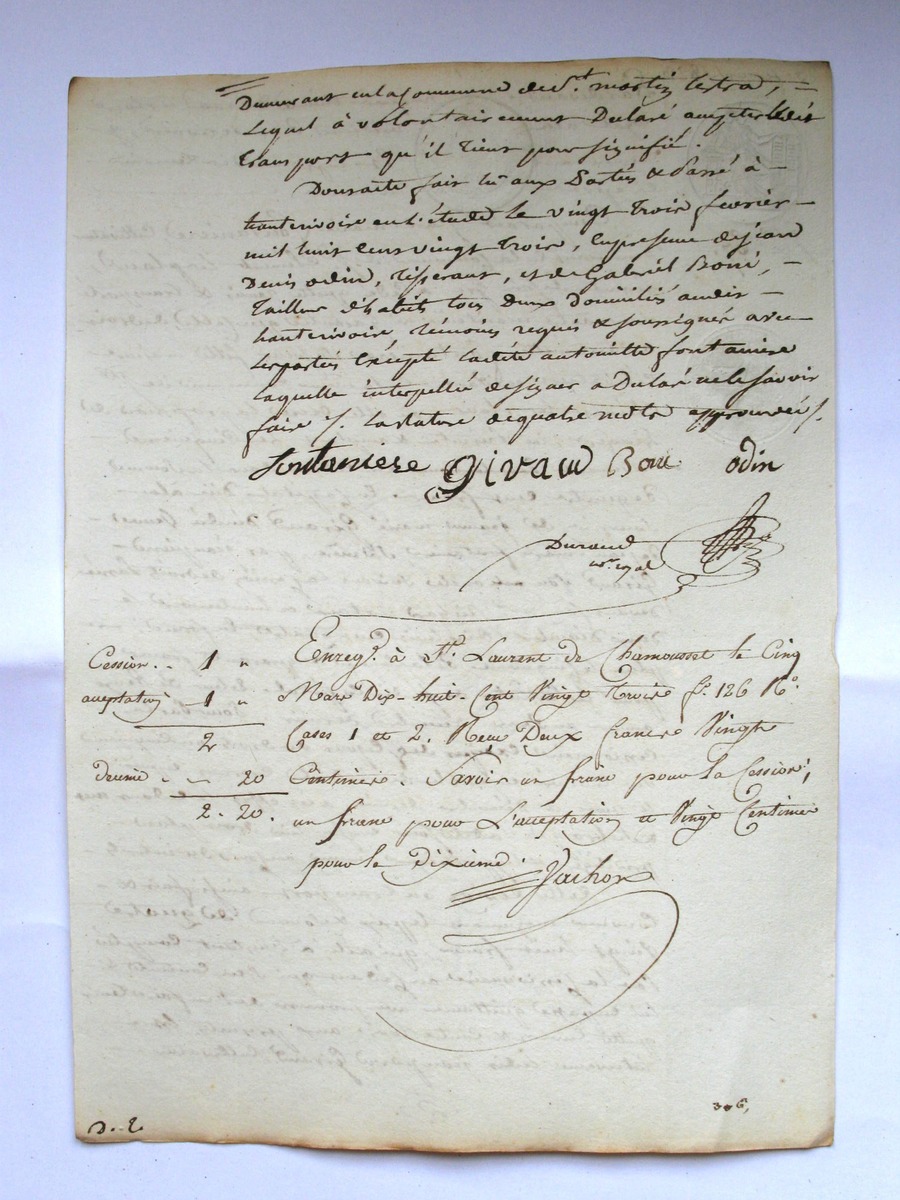 Demeurant en la Commune de St. martin lestra, =
Lequel à volontairement Déclaré accepter ledit
transport qu'il tient pour signifié.
Dont acte fait lu aux Parties & Passé à –
hauterivoire en l'étude le vingt trois février –
mil huit cent vingt trois, En presence de jean
Denis odin, tisserant, et de Gabriel Boni, –
Tailleur d'habits tous deux domiciliés audit –
hauterivoire témoins requis & soussignés avec
les parties Excepté ladite antoinette fontaniere
laquelle interpellée de signer a Déclaré ne le savoir
faire /. la rature de quatre mots approuvée /.
fontaniere Givaud Boni odin
Durand
nre. royal
Enregé. à St. Laurent de Chamousset le Cinq
Cession. - 1 "
Mars Dix-huit-Cent Vingt trois fo. 126 Ro.
acceptation 1 "
Cases 1 et 2. Reçu Deux francs Vingt
2
Centimes. Savoir un franc pour la Cession;
decime. - - 20
un franc pour L'acceptation et Vingt Centimes
2. 20.
pour le dixième.
Vachon
306,
D. 2